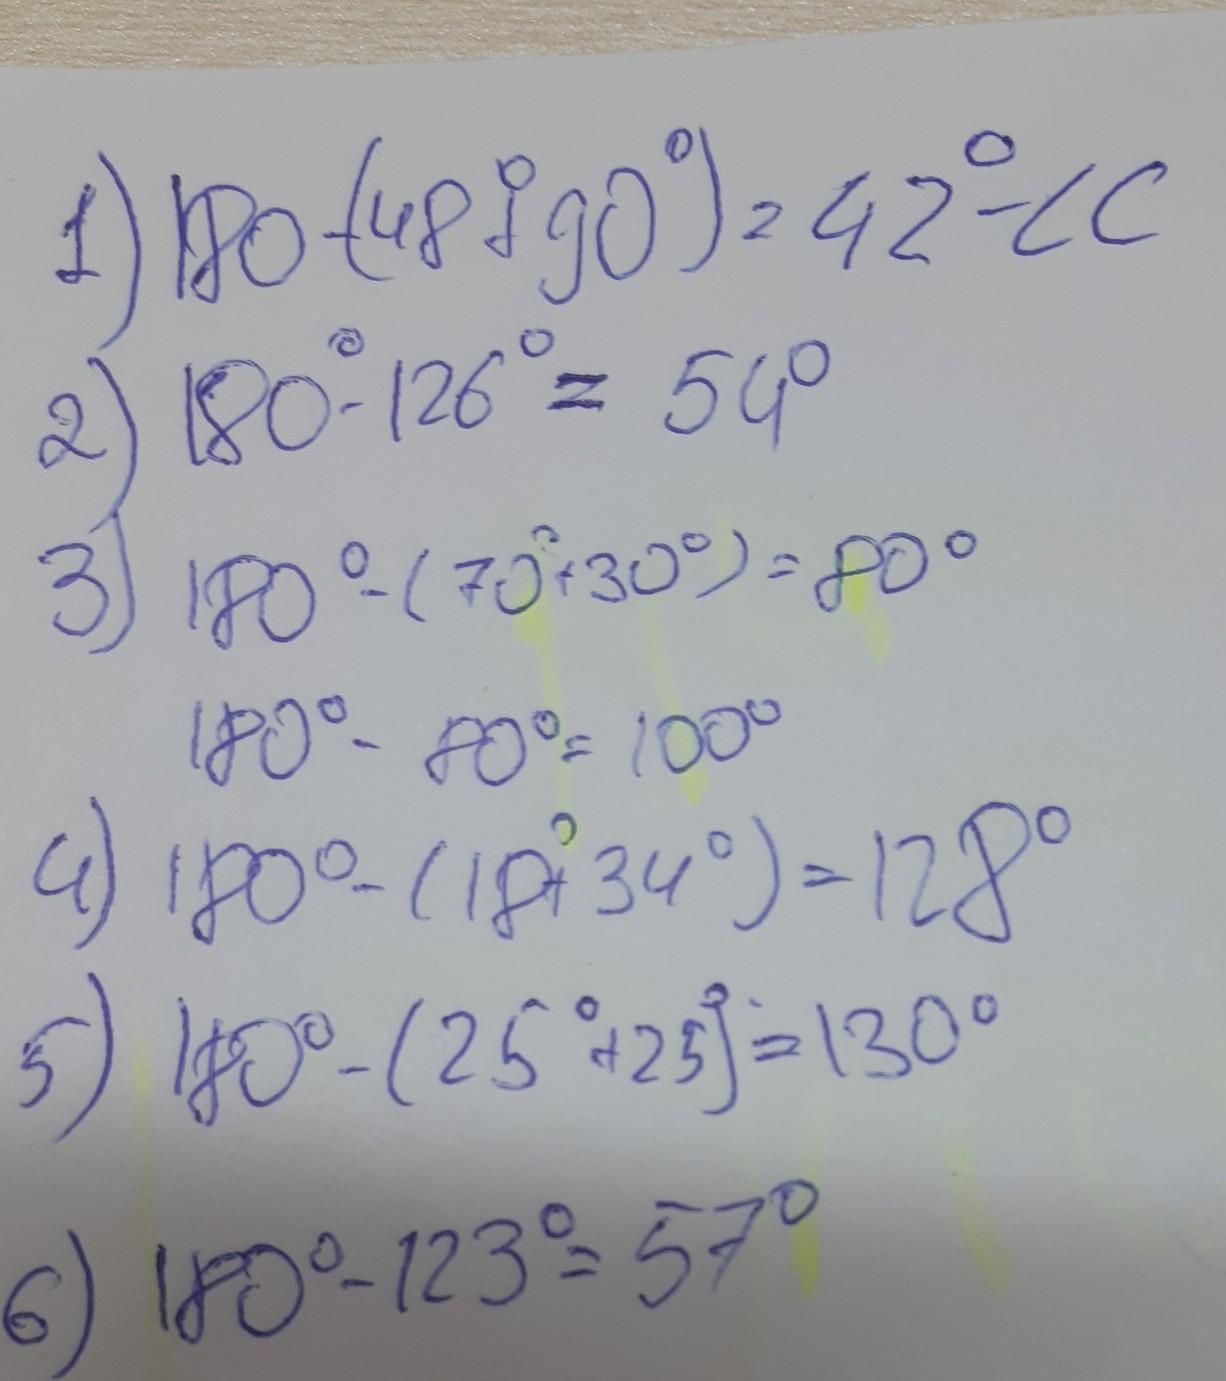 1) 180-(48°+90°)=42°-∠C
2) 180°-126°=54°
3) 180°-(70°+30°)=80°
180°-80°=100°
4) 180°-(18°+34°)=128°
5) 180°-(25°+25°)=130°
6) 180°-123°=57°